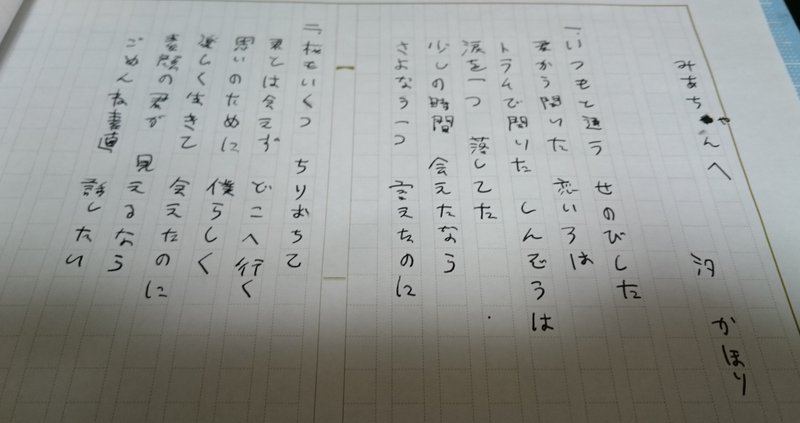 みあちゃんへ
汐 かほり
一、いつもと違う せのびした
君から聞いた 恋いろは
トラムで聞いた しんぞうは
涙を一つ 落してた
少しの時間 会えたなら
さよなら一つ 言えたのに
二、桜もいくつ ちりおちて
君とは会えず どこへ行く
思いのために 僕らしく
楽しく生きて 会えたのに
素顔の君が 見えるなら
ごめんね素直 話したい